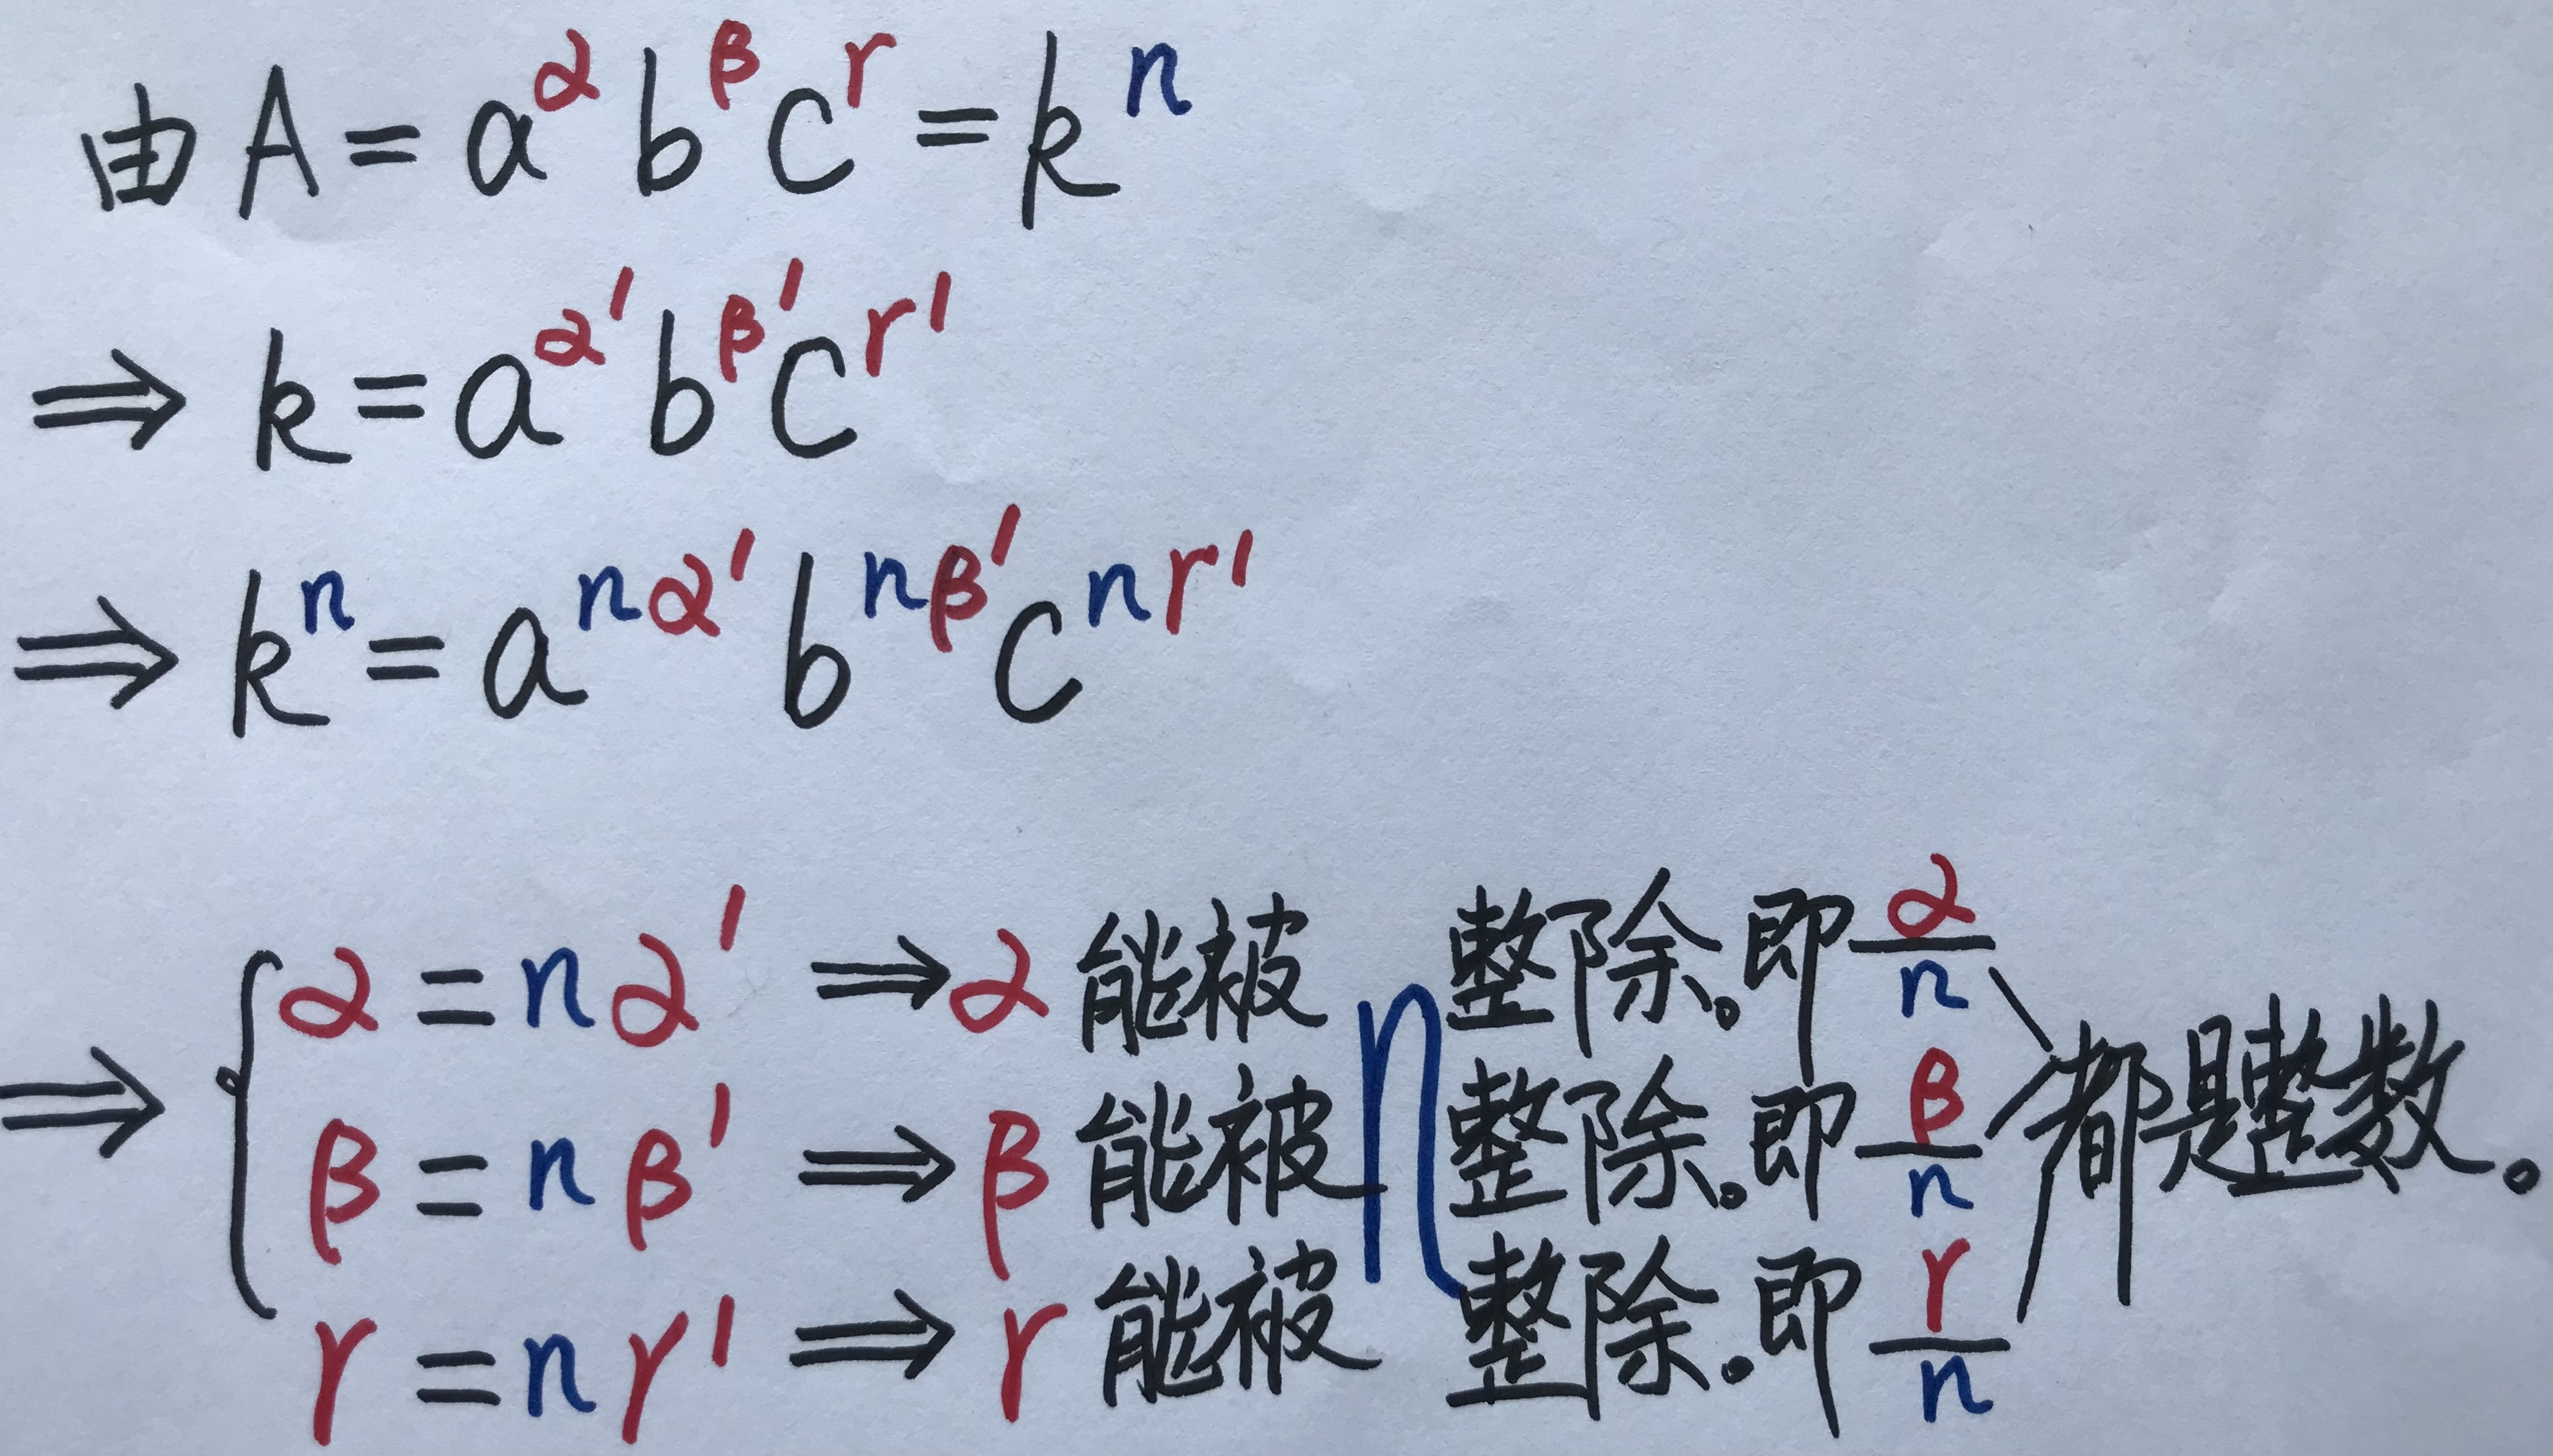 由 A = a^α b^β c^r = k^n
⇒ k = a^α' b^β' c^r'
⇒ k^n = a^nα' b^nβ' c^nr'
⇒ { α = nα' ⇒ α 能被 n 整除。即 α/n 都是整数。
β = nβ' ⇒ β 能被 整除。即 β/n
r = nr' ⇒ r 能被 整除。即 r/n